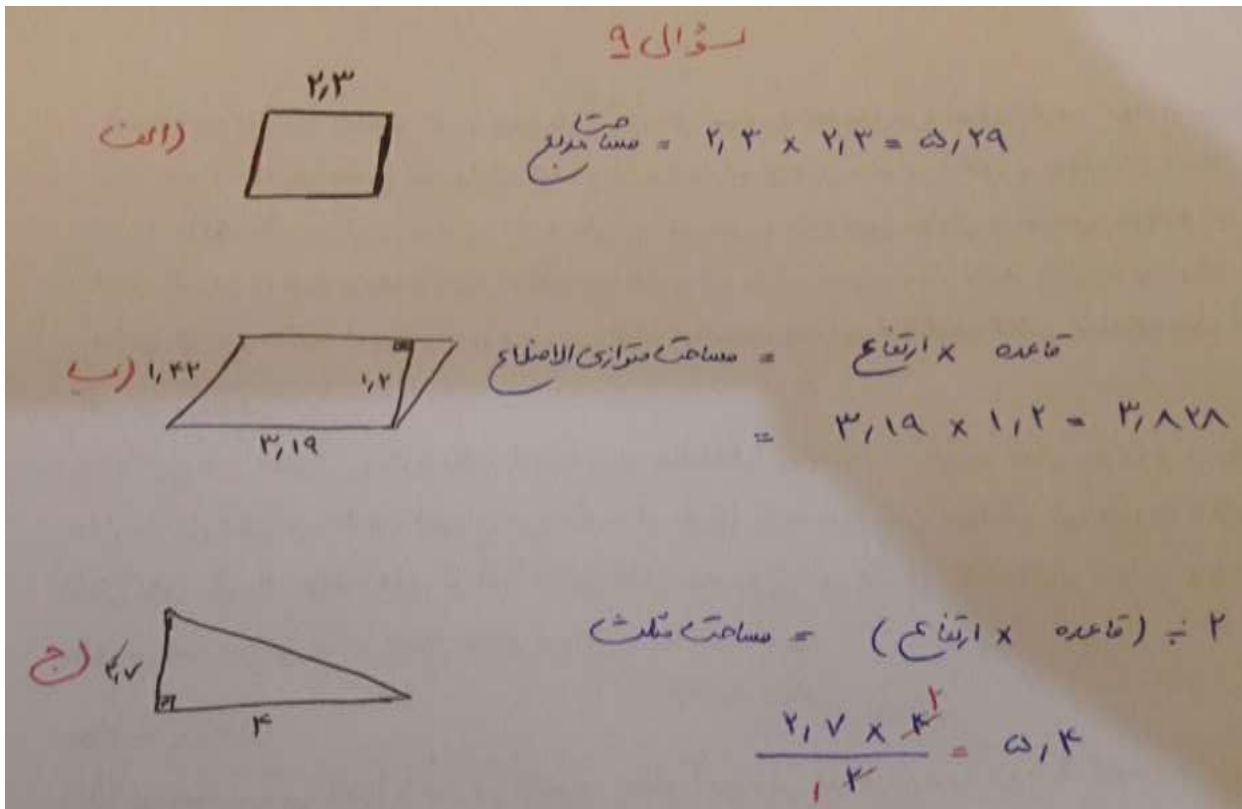 سؤال ۹
الف)
۲٫۳
مساحت مربع = ۲٫۳ × ۲٫۳ = ۵٫۲۹
ب)
۱٫۴۲
۱٫۲
۳٫۱۹
مساحت متوازی الاضلاع = قاعده × ارتفاع
= ۳٫۱۹ × ۱٫۲ = ۳٫۸۲۸
ج)
۲٫۷
۴
مساحت مثلث = (قاعده × ارتفاع) ÷ ۲
۲٫۷ × ۴ ۲
۱ ۲
= ۵٫۴